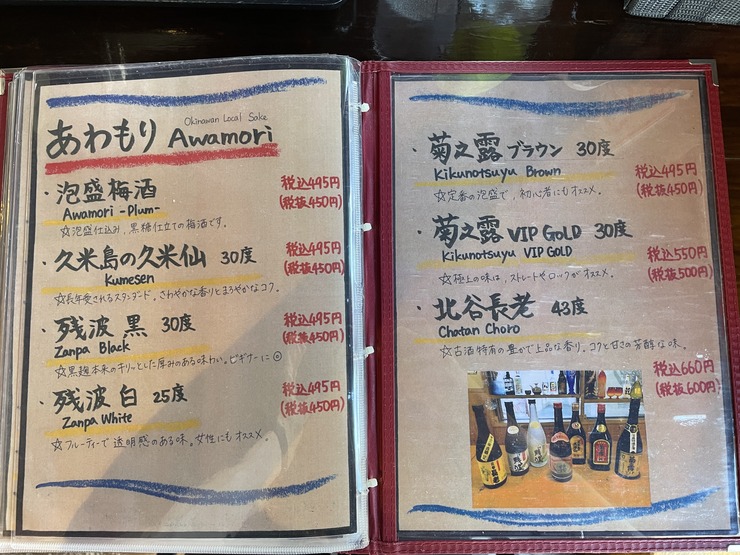 Okinawan Local Sake
あわもり Awamori
・泡盛梅酒
Awamori -Plum-
税込495円
(税抜450円)
☆泡盛仕込み、黒糖仕立ての梅酒です。
・久米島の久米仙 30度
Kumesen
税込495円
(税抜450円)
☆長年愛されるスタンダード。さわやかな香りとまろやかなコク。
・残波 黒 30度
Zanpa Black
税込495円
(税抜450円)
☆黒麹本来のキリッとした厚みのある味わい。ビギナーに◎
・残波 白 25度
Zanpa White
税込495円
(税抜450円)
☆フルーティーで透明感のある味。女性にもオススメ。
・菊之露 ブラウン 30度
Kikunotsuyu Brown
税込495円
(税抜450円)
☆定番の泡盛で、初心者にもオススメ。
・菊之露 VIP GOLD 30度
Kikunotsuyu VIP GOLD
税込550円
(税抜500円)
☆極上の味は、ストレートやロックがオススメ。
・北谷長老 43度
Chatan Choro
☆古酒特有の豊かで上品な香り。コクと甘さの芳醇な味。
税込660円
(税抜600円)